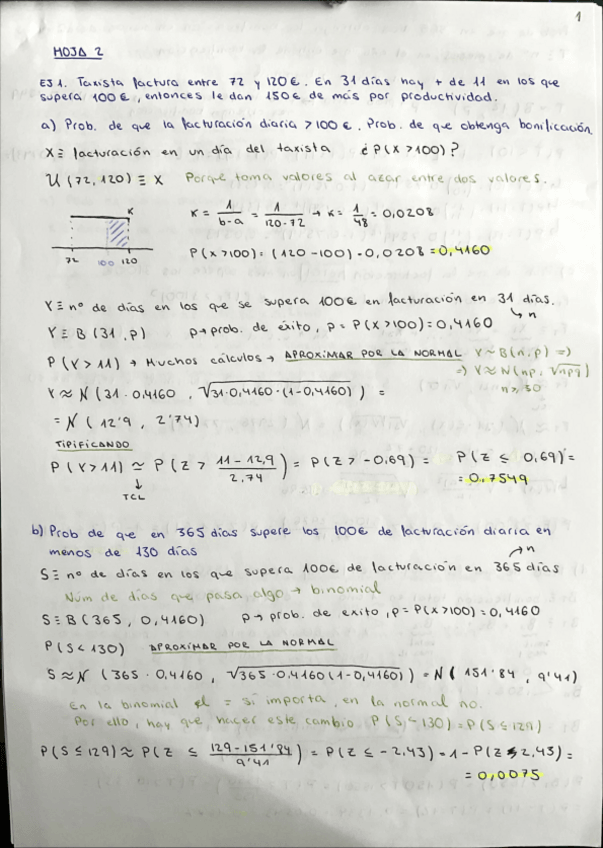 1
HOJA 2
EJ 1. Taxista factura entre 72 y 120€. En 31 días hay + de 11 en los que
supera 100€, entonces le dan 150€ de más por productividad.
a) Prob. de que la facturación diaria > 100€. Prob. de que obtenga bonificación.
X ≡ facturación en un día del taxista ¿P(X > 100)?
U (72, 120) ≡ X Porque toma valores al azar entre dos valores.
K
K = 1/(b-a) = 1/(120-72) → K = 1/48 = 0,0208
72 100 120
P(X>100) = (120-100)·0,0208 = 0,4160
Y ≡ nº de días en los que se supera 100€ en facturación en 31 días.
↳ n
Y ≡ B(31, p) p → prob. de éxito, p = P(X>100) = 0,4160
P(Y>11) → Muchos cálculos → APROXIMAR POR LA NORMAL. Y ~ B(n, p) =>
=> Y ≈ N(np, √npq)
n > 30
Y ≈ N(31·0,4160, √31·0,4160·(1-0,4160)) =
= N(12'9, 2'74)
TIPIFICANDO
P(Y>11) ≈ P(Z > (11-12,9)/2,74) = P(Z > -0,69) = P(Z ≤ 0,69) =
= 0.7549
↓
TCL
b) Prob de que en 365 días supere los 100€ de facturación diaria en
menos de 130 días
n
S ≡ nº de días en los que supera 100€ de facturación en 365 días
Núm de días que pasa algo → binomial
S ≡ B(365, 0,4160) p → prob. de exito, p = P(X>100) = 0,4160
P(S<130) APROXIMAR POR LA NORMAL
S ≈ N(365·0,4160, √365·0,4160(1-0,4160)) = N(151'84, 9'41)
En la binomial el = si importa, en la normal no.
Por ello, hay que hacer este cambio. P(S<130) = P(S≤129)
P(S≤129) ≈ P(Z ≤ (129-151'84)/9'41) = P(Z ≤ -2,43) = 1 - P(Z ≤ 2,43) =
= 0,0075